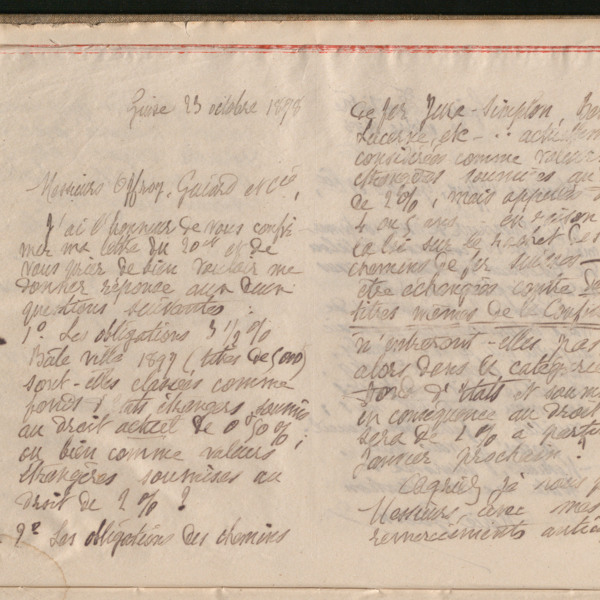 Guise 23 octobre 1898
Messieurs Offroy, Guiard et Cie,
J'ai l'honneur de vous confir
mer ma lettre du 20 ct et de
vous prier de bien vouloir me
donner réponse aux deux
questions suivantes :
1° Les obligations 3 1/2 %
Bâle ville 1897 (titres de 500)
sont-elles classées comme
fonds d'états étrangers soumis
au droit actuel de 0f50 % ;
ou bien comme valeurs
étrangères soumises au
droit de 2 % ?
2° Les obligations des chemins
de fer Jura-Simplon,
Lucerne, etc - ..
considérées comme valeurs
étrangères soumises au
de 2 %, mais
4 ou 5 ans en raison
la loi sur le rachat des
chemins de fer suisses
être échangées contre
titres mêmes de la
n'entreront-elles pas
alors dans la catégorie
fonds d'états et
en conséquence au droit
sera de 1 % à partir
Janvier prochain ?
Agréez, je vous
Messieurs avec mes
remerciements